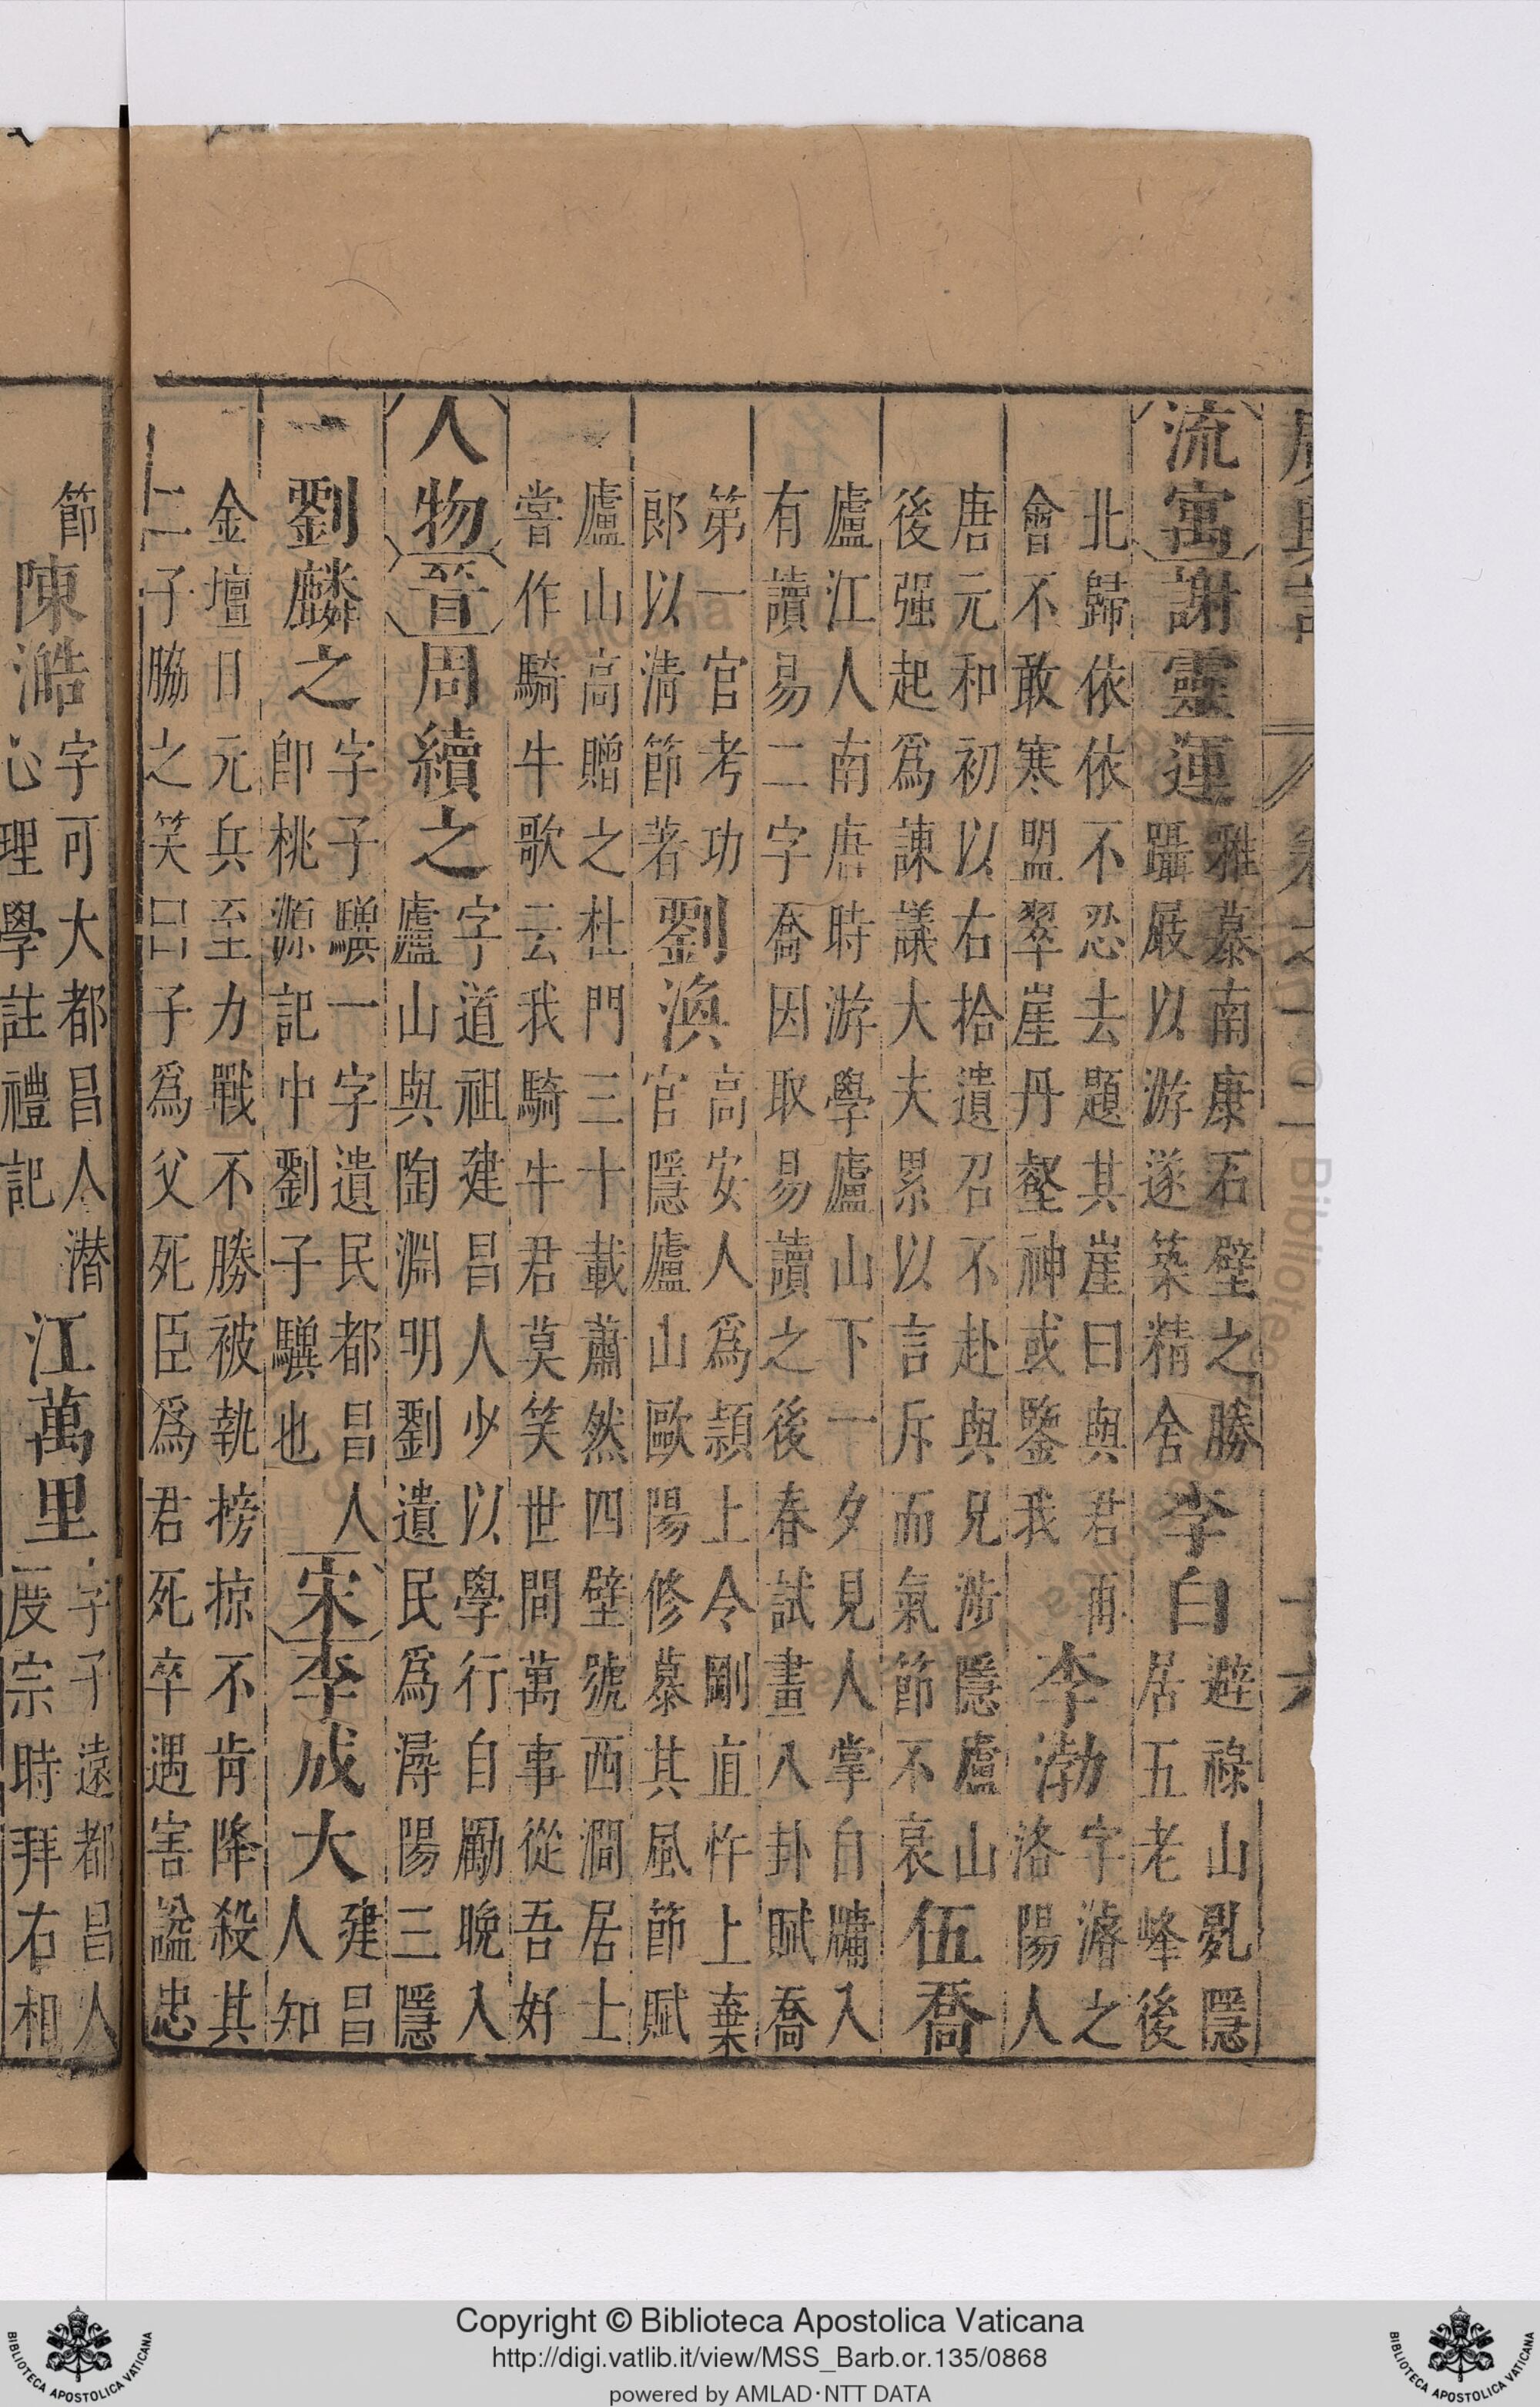 流寓謝靈運雅慕南康石壁之勝李白避祿山亂隱
躡屐以游遂築精舍居五老峰後
北歸依依不忍去題其崖曰與君再李渤字濬之
會不敢寒盟翠崖丹壑神或鑒我洛陽人
唐元和初以右拾遺召不赴與兄涉隱廬山伍喬
後强起爲諫議大夫累以言斥而氣節不衰
廬江人南唐時游學廬山下一夕見人掌自牖入
有讀易二字喬因取易讀之後春試畫八卦賦喬
第一官考功劉渙高安人爲潁上令剛直忤上棄
郎以清節著官隱廬山歐陽修慕其風節賦
廬山高贈之杜門三十載蕭然四壁號西澗居士
嘗作騎牛歌云我騎牛君莫笑世間萬事從吾好
人物晉周續之字道祖建昌人少以學行自勵晚入
廬山與陶淵明劉遺民爲潯陽三隱
劉麟之字子驥一字遺民都昌人宋李成大建昌
卽桃源記中劉子驥也人知
金壇日元兵至力戰不勝被執搒掠不肯降殺其
二子脇之笑曰子爲父死臣爲君死卒遇害謚忠
節陳澔字可大都昌人潜江萬里字子遠都昌人
心理學註禮記度宗時拜右相